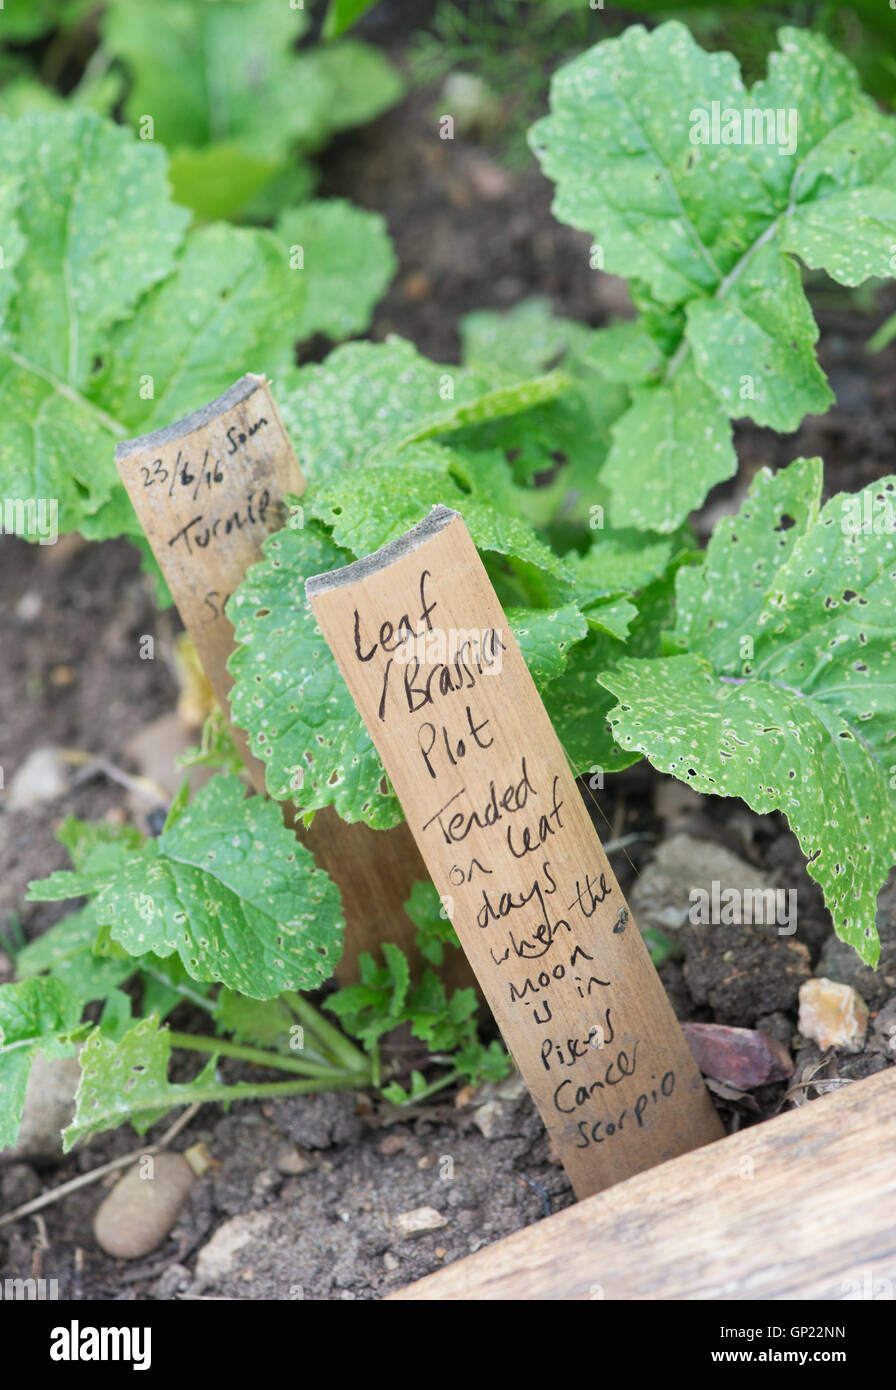 23/6/16 Sown
Turnip
Leaf
/Brassica
Plot
Tended
on Leaf
days
when the
Moon
is in
Pisces
Cancer
Scorpio
alamy
Image ID: GP22NN
www.alamy.com